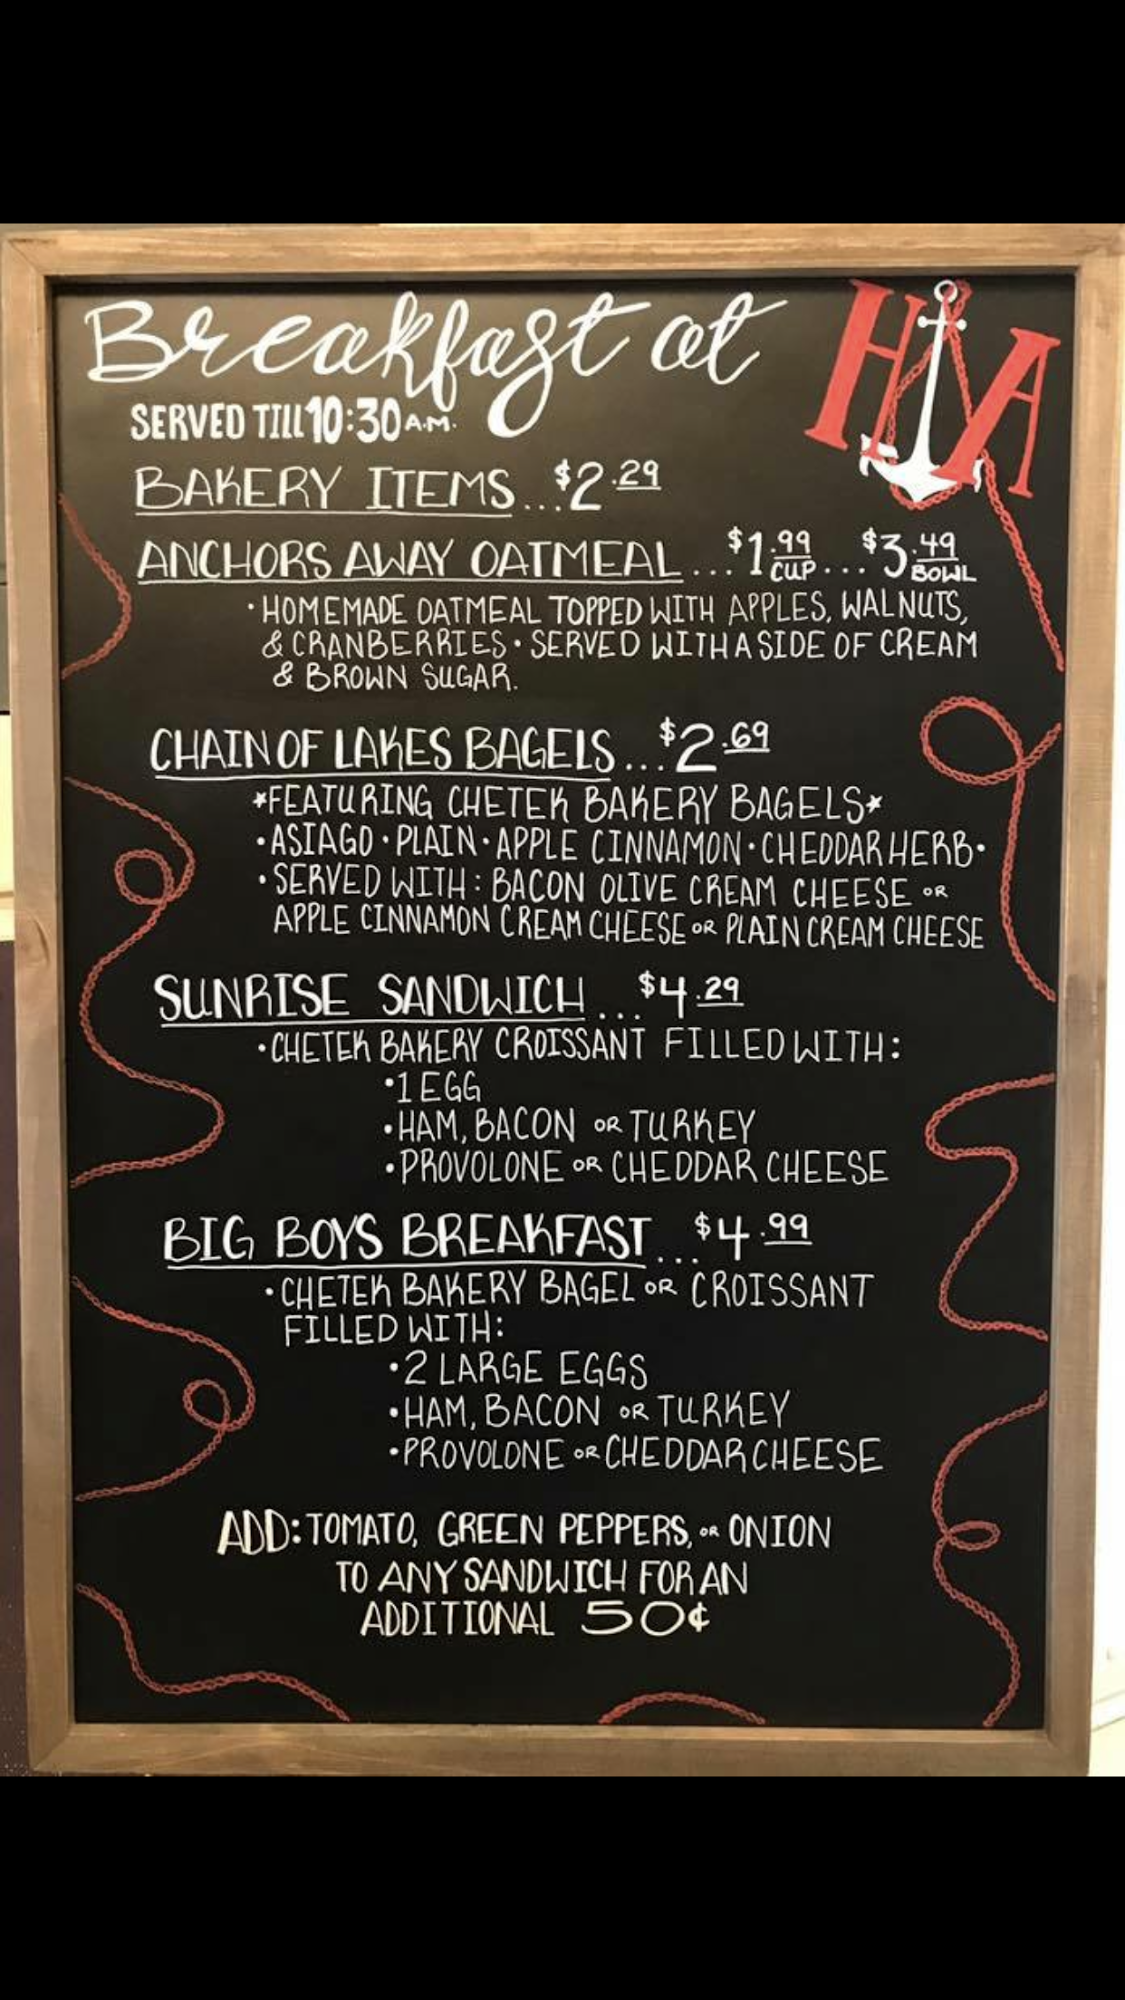 Breakfast at HA
SERVED TILL 10:30 A.M.
BAKERY ITEMS...$2.29
ANCHORS AWAY OATMEAL...$1.99 CUP...$3.49 BOWL
• HOMEMADE OATMEAL TOPPED WITH APPLES, WALNUTS,
& CRANBERRIES • SERVED WITH A SIDE OF CREAM
& BROWN SUGAR.
CHAIN OF LAKES BAGELS...$2.69
*FEATURING CHETEK BAKERY BAGELS*
• ASIAGO • PLAIN • APPLE CINNAMON • CHEDDAR HERB •
• SERVED WITH: BACON OLIVE CREAM CHEESE OR
APPLE CINNAMON CREAM CHEESE OR PLAIN CREAM CHEESE
SUNRISE SANDWICH...$4.29
• CHETEK BAKERY CROISSANT FILLED WITH:
• 1 EGG
• HAM, BACON OR TURKEY
• PROVOLONE OR CHEDDAR CHEESE
BIG BOYS BREAKFAST...$4.99
• CHETEK BAKERY BAGEL OR CROISSANT
FILLED WITH:
• 2 LARGE EGGS
• HAM, BACON OR TURKEY
• PROVOLONE OR CHEDDAR CHEESE
ADD: TOMATO, GREEN PEPPERS, OR ONION
TO ANY SANDWICH FOR AN
ADDITIONAL 50¢